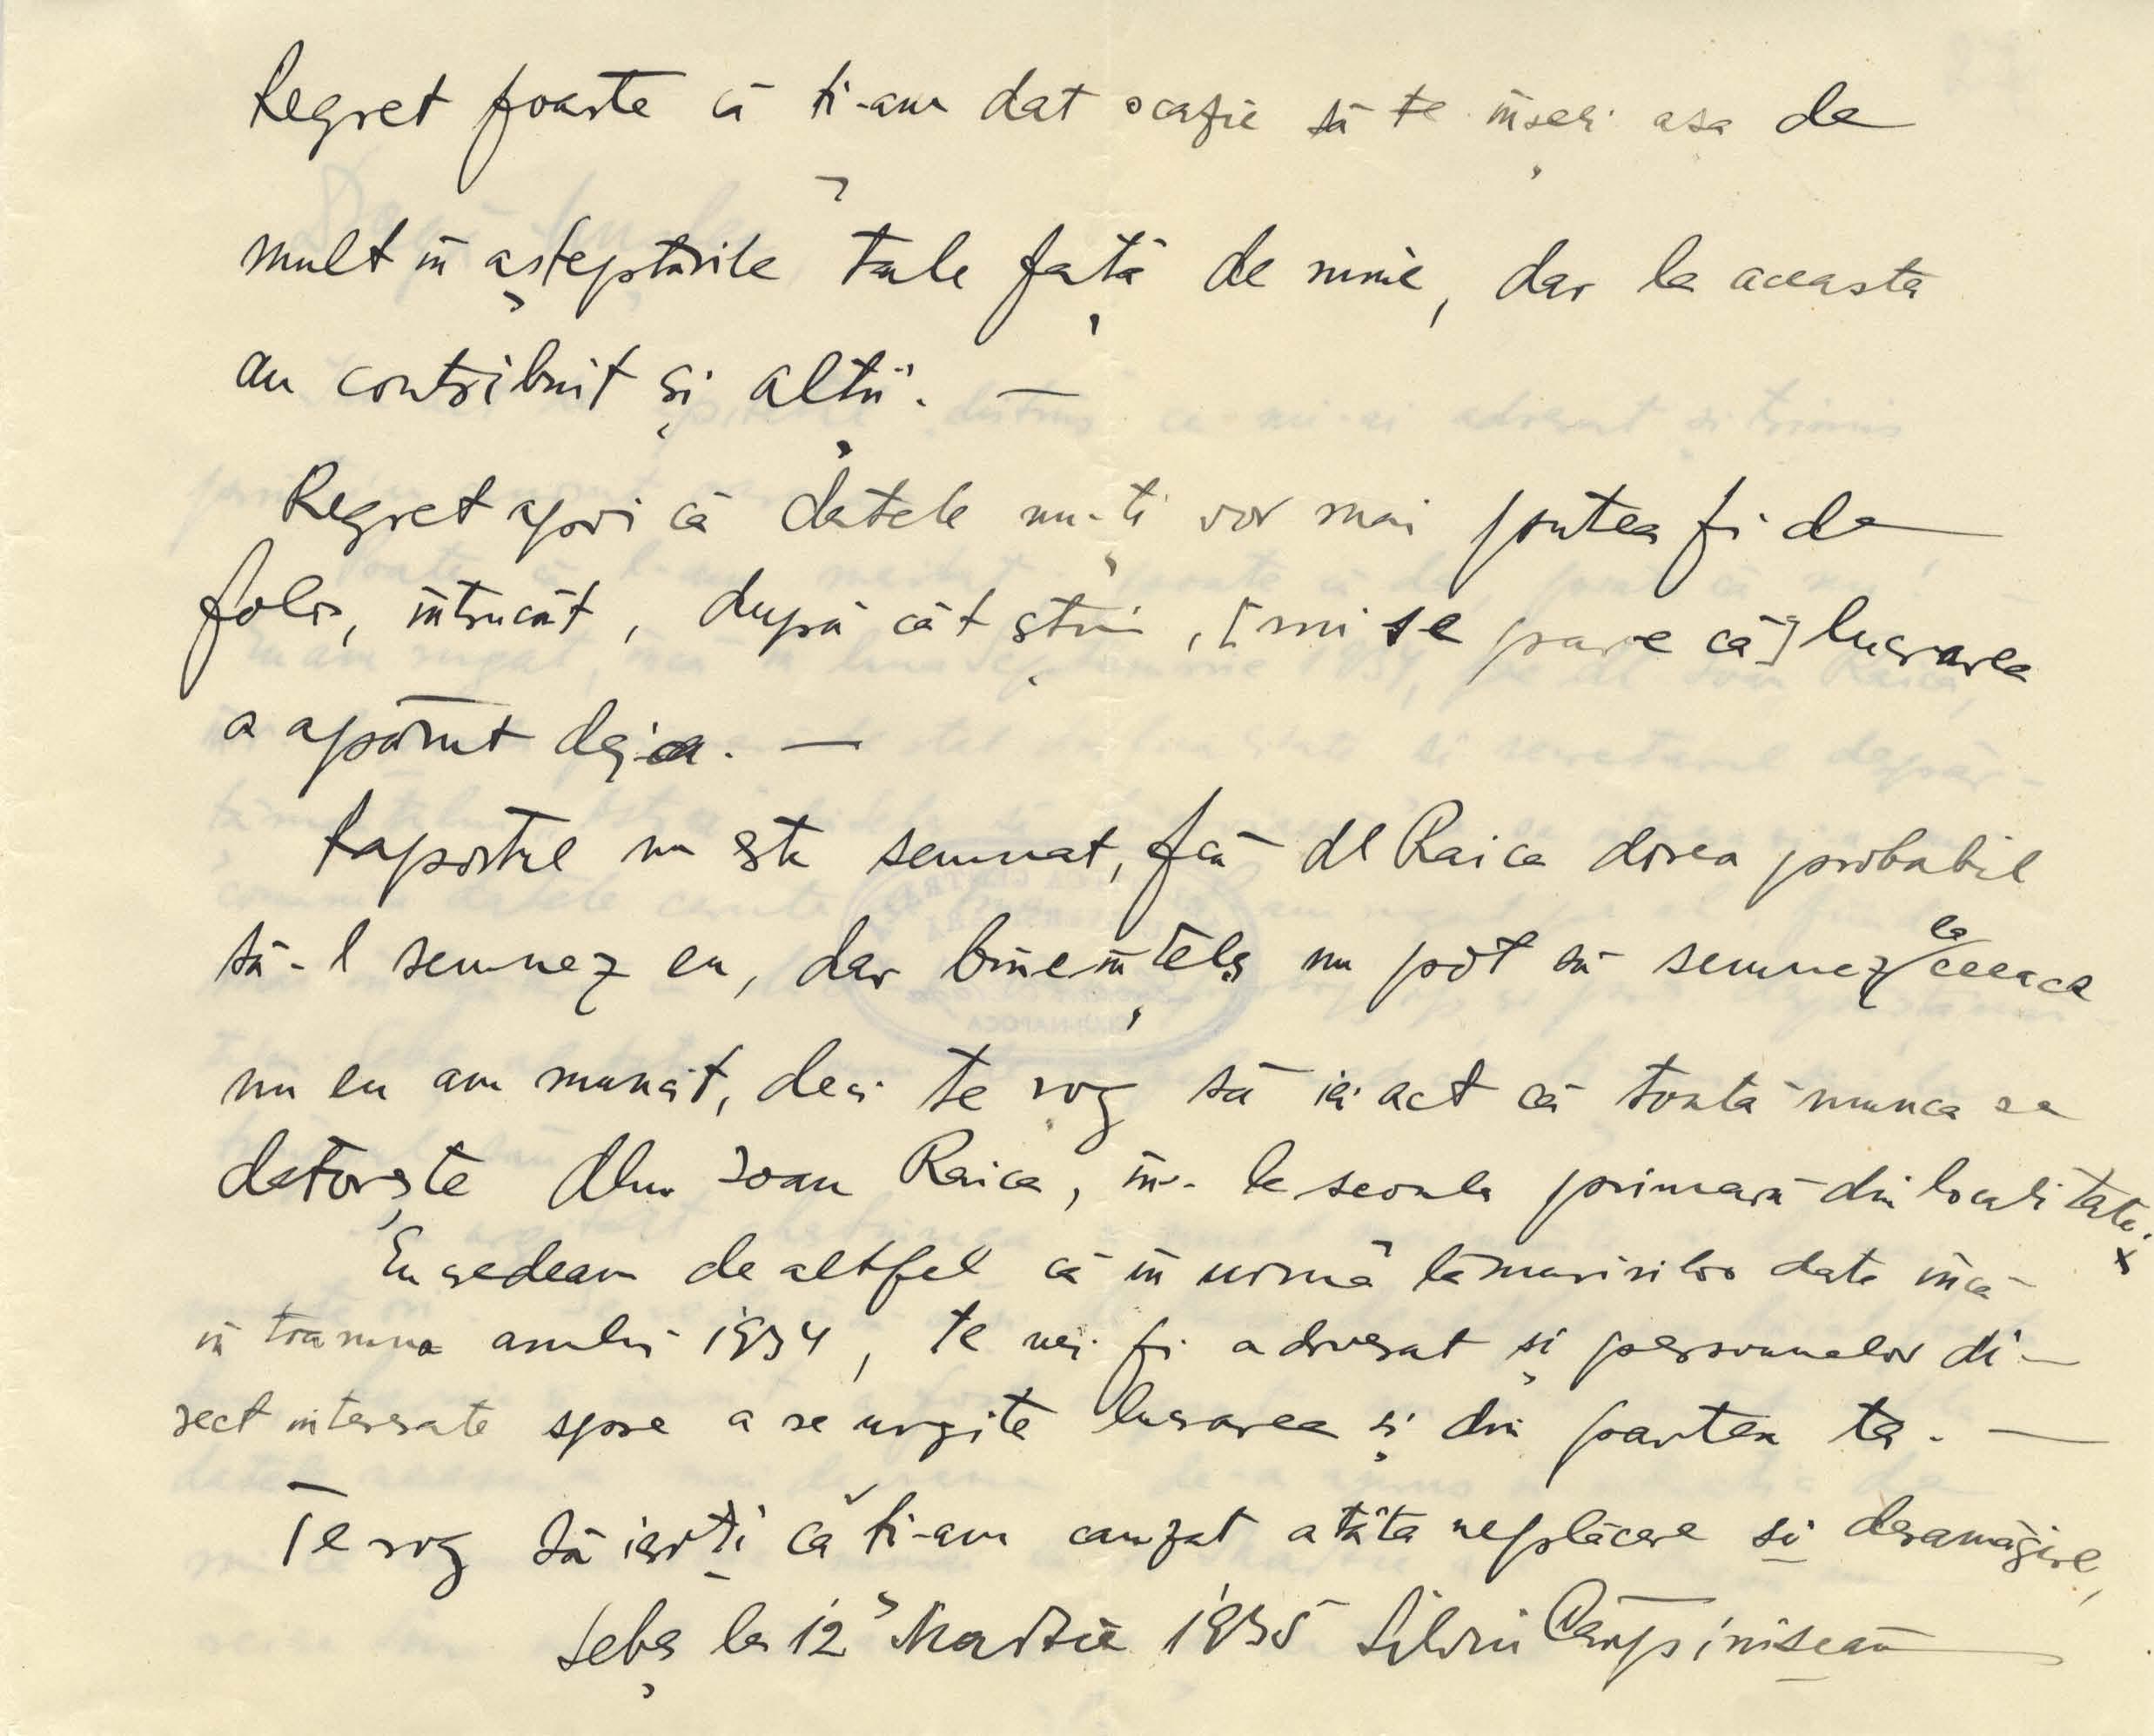 Regret foarte că ți-am dat ocazie să te înșeli așa de
mult în așteptările tale față de mine, dar la aceasta
au contribuit și alții. —
Regret apoi că datele nu-ți vor mai putea fi de
folos, întrucât, după cât știu, [mi se pare că] lucrarea
a apărut deja. —
Raportul nu este semnat, fiă dl Raica dorea probabil
să-l semnez eu, dar bineînțeles nu pot să semnez la ceeace
nu eu am muncit, deci te rog să iai act că toată munca se
datorește Dlui Ioan Raica, înv. la scoala primară din localitate. x
Eu credeam de altfel că în urma lămuririlor date încă
în toamna anului 1934, te vei fi adresat și persoanelor di-
rect interesate spre a se urgita lucrarea și din partea ta. —
Te rog să ierți că ți-am cauzat atâta neplăcere și desamăgire,
Sebeș la 12 Martie 1935 Silviu Cărpinișean